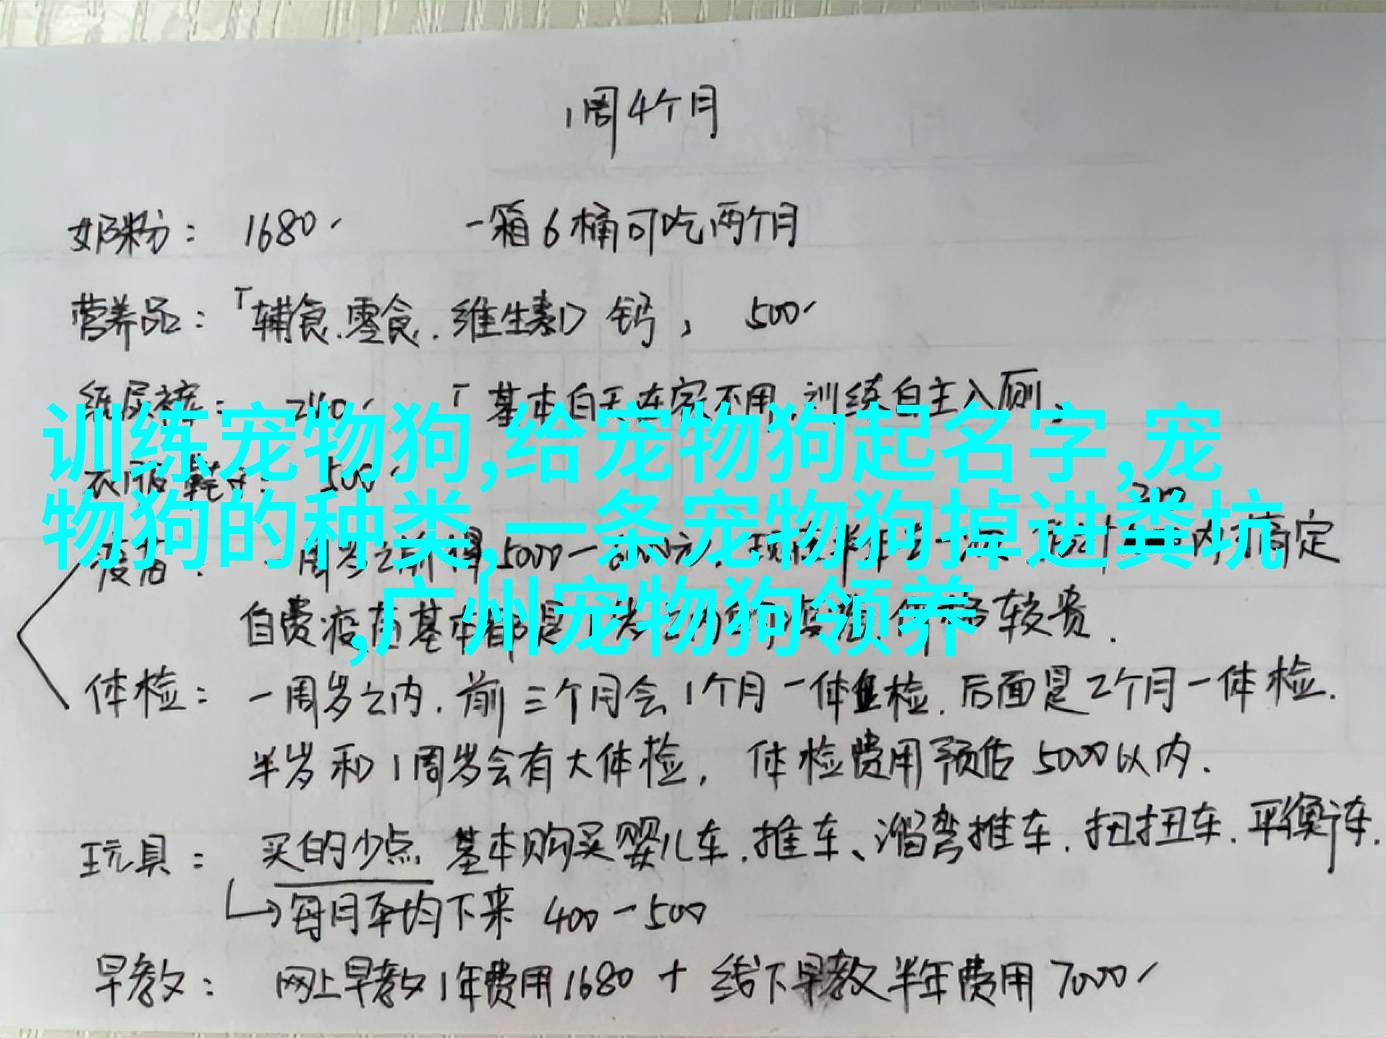 1周4个月
奶粉： 1680 一箱6桶可吃两个月
营养品：「辅食.零食.维生素D 钙， 500
纸尿裤： 240 「基本白天在家不用,训练自主入厕、
训练宠物狗,给宠物狗起名字,宠
衣服 鞋子： 500
物狗的种类,一条宠物狗掉进粪坑
疫苗： 一周岁之前得5000一
内搞定
,广州宠物狗领养
自费疫苗基本都是 较贵.
体检：一周岁之内.前三个月会1个月一体检.后面是2个月一体检.
半岁和1周岁会有大体检，体检费用预估5000以内.
玩具： 买的少点 基本购买婴儿车.推车、溜弯推车.扭扭车.平衡车.
每月平均下来 400一500
早教： 网上早教1年费用1680 + 线下早教半年费用7000